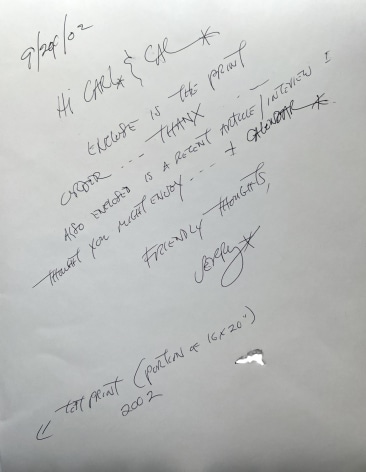 9/24/02
Hi CARL* & CAR *
ENCLOSE IS THE PRINT
ORDER... THANX...
ALSO ENCLOSED IS A RECENT ARTICLE/INTERVIEW I
THOUGHT YOU MIGHT ENJOY... + CALENDAR *
FRIENDLY THOUGHTS,
JERRY*
PRINT (PORTION OF 16 x 20")
2002